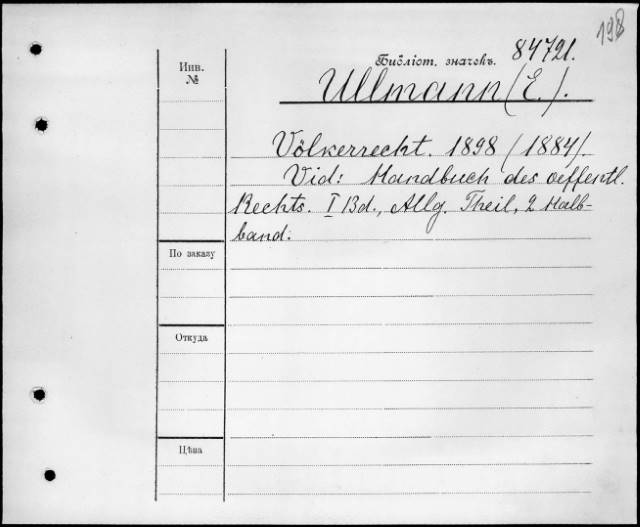 198
84721.
Инв.
№
Библіот. значекъ.
Ullmann (E.).
Völkerrecht. 1898 (1884).
Vid: Handbuch des oeffentl.
Rechts. I Bd., Allg. Theil, 2 Halb-
band.
По заказу
Откуда
Цѣна